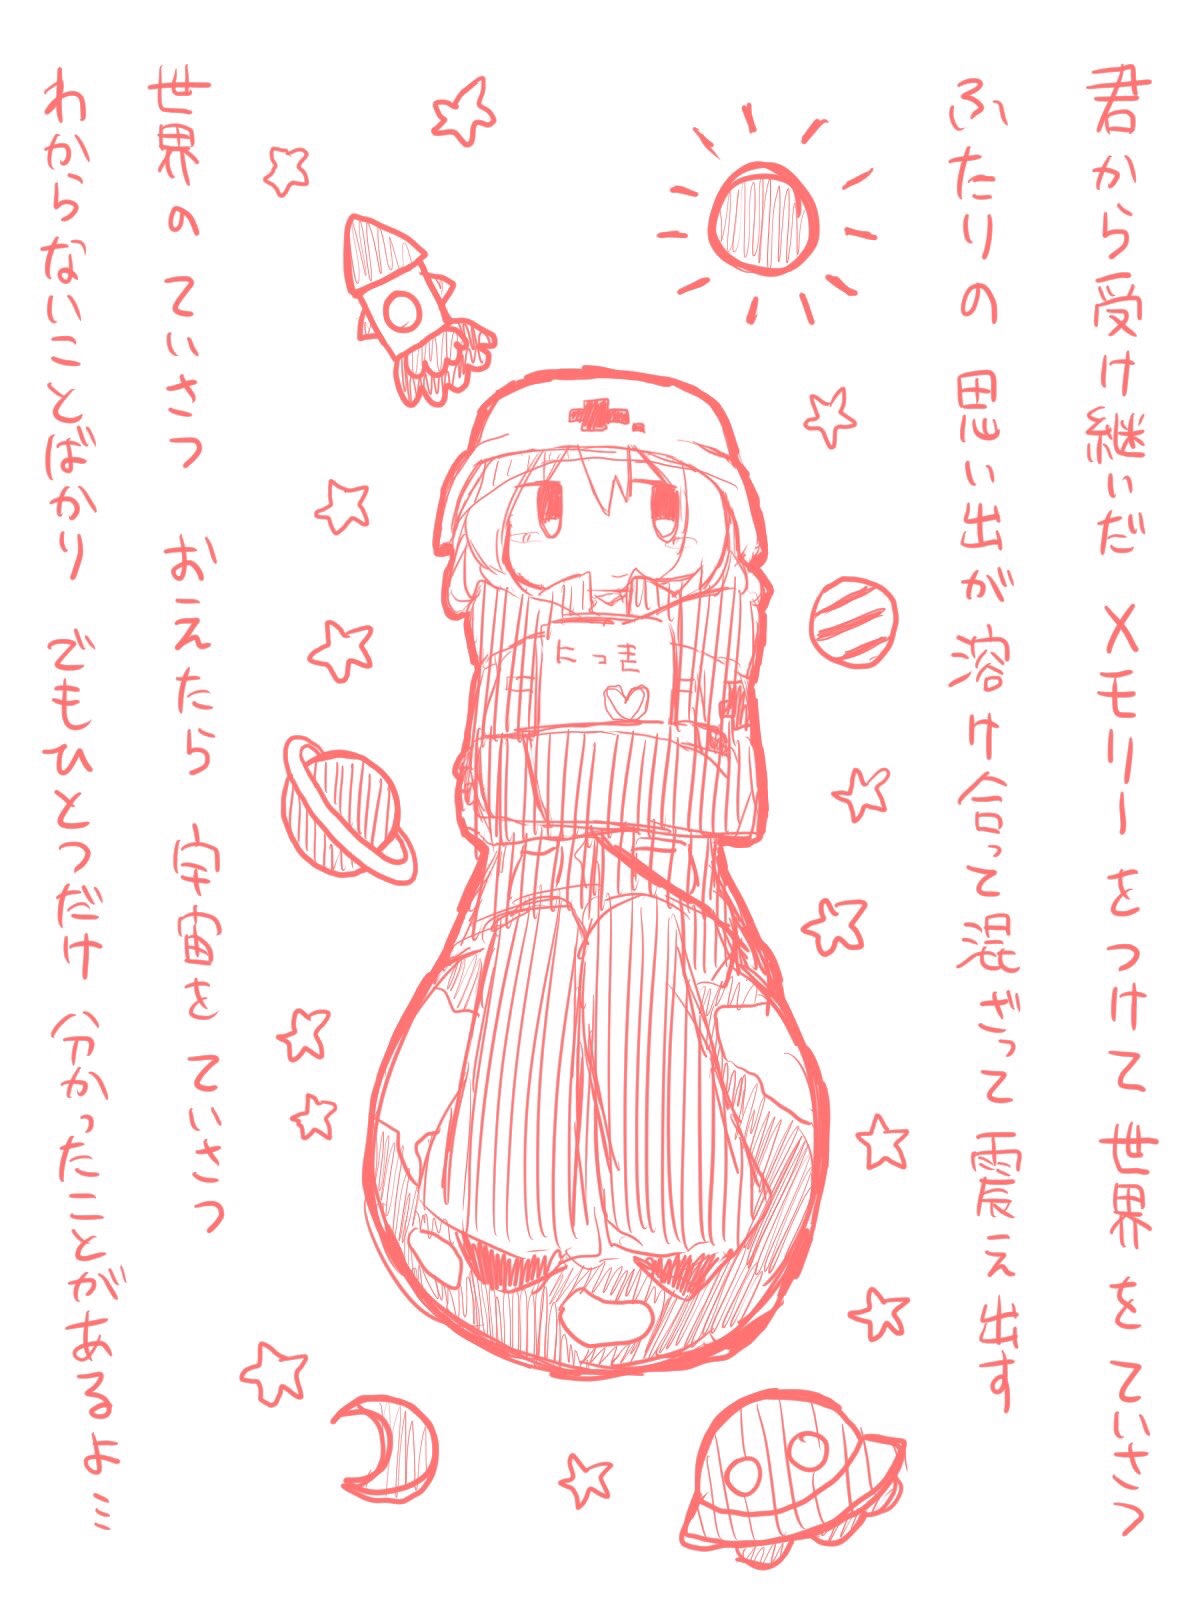 君から受け継いだ メモリーをつけて世界をていさつ
ふたりの思い出が溶け合って混ざって震え出す
にっき
世界のていさつ おえたら 宇宙をていさつ
わからないことばかり でもひとつだけ 分かったことがあるよ…